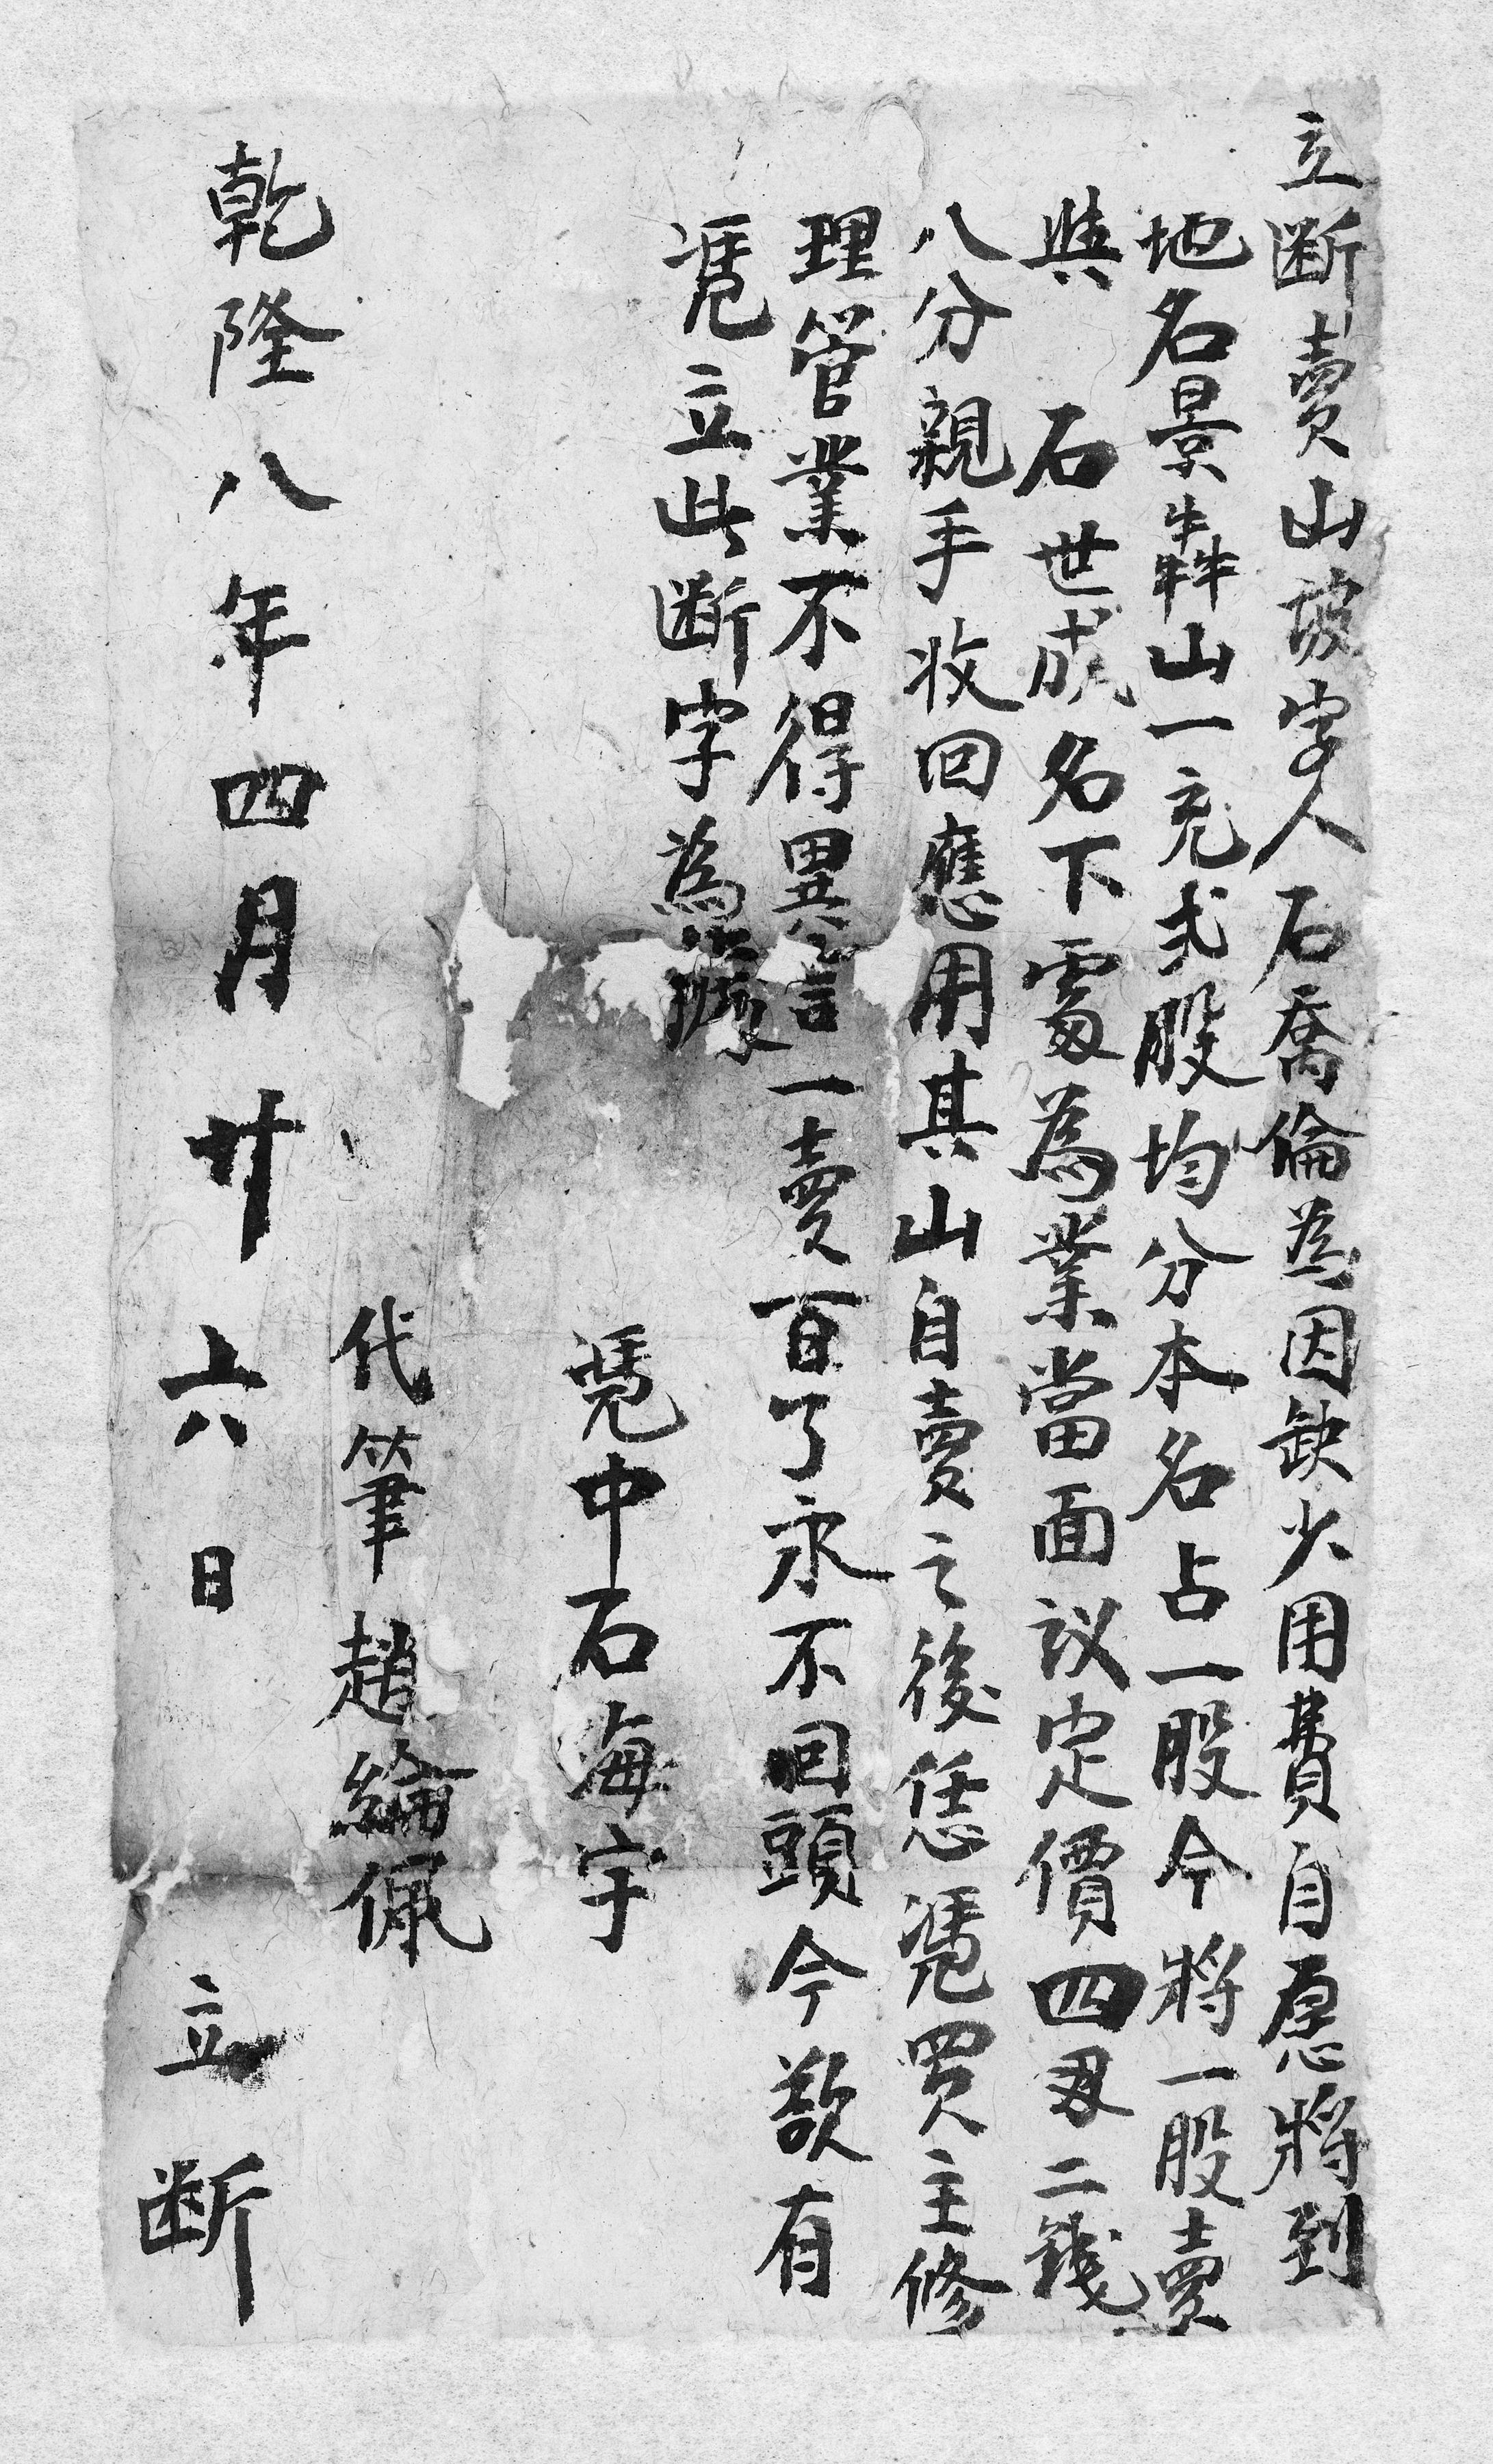 立断賣山坡字人石喬倫為因缺少用費自愿將到
地名景犇山一充弍股均分本名占一股今將一股賣
與 石世成名下處為業當面议定價四両二錢
八分親手收回應用其山自賣之後恁凴買主修
理管業不得異言一賣百了永不回頭今欲有
凴立此断字為據
凴中石海宇
代筆趙綸佩
乾隆八年四月廿六日 立断